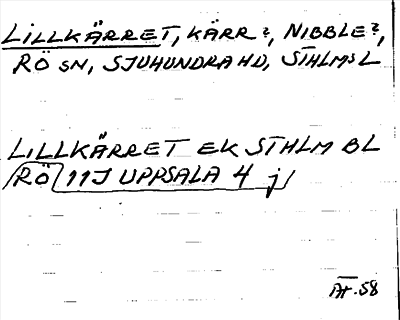 LILLKÄRRET, KÄRR?, NIBBLE?,
RÖ SN, SJUHUNDRA HD, STHLMS L
LILLKÄRRET EK STHLM BL
RÖ 11J UPPSALA 4 j
58